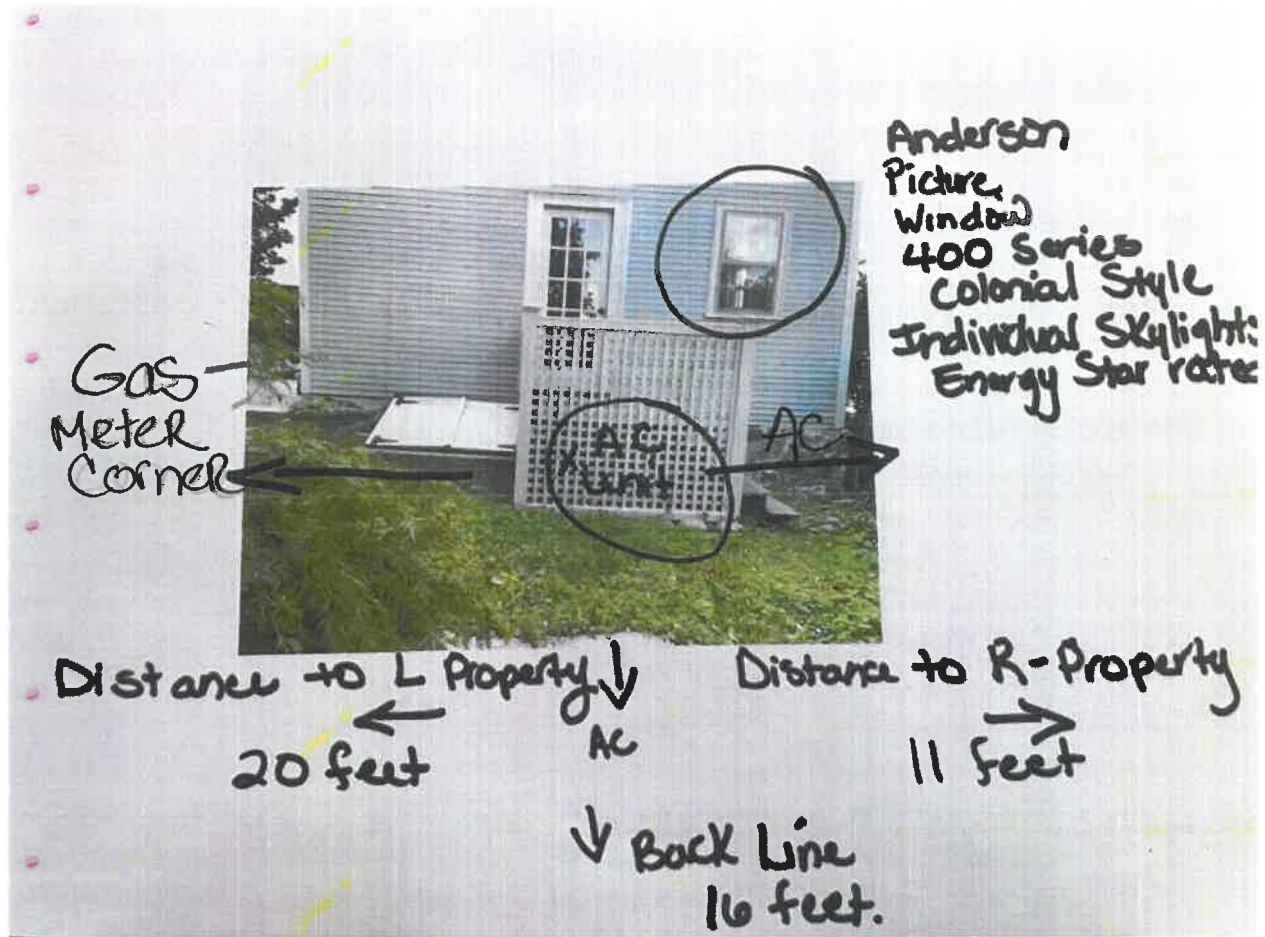 Anderson
Picture
Window
400 Series
Colonial Style
Individual Skylights
Energy Star rated
Gas
Meter
Corner
AC
Unit
AC
Distance to L Property
20 feet
AC
Distance to R-Property
11 feet
Back Line
16 feet.